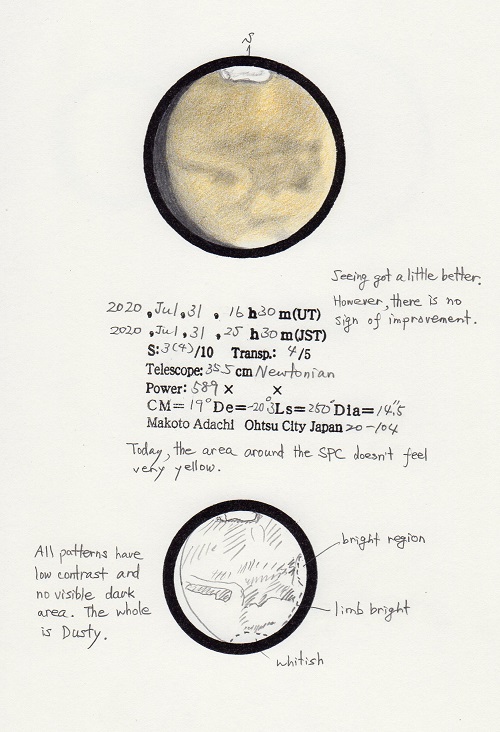 S
Seeing got a little better.
However, there is no
sign of improvement.
2020, Jul, 31, 16 h 30 m (UT)
2020, Jul, 31, 25 h 30 m (JST)
S: 3(4)/10 Transp.: 4/5
Telescope: 355 cm Newtonian
Power: 589 × ×
CM= 19° De=-20.°3 Ls= 250° Dia= 14."5
Makoto Adachi Ohtsu City Japan 20-104
Today, the area around the SPC doesn't feel
very yellow.
All patterns have
low contrast and
no visible dark
area. The whole
is Dusty.
bright region
limb bright
whitish